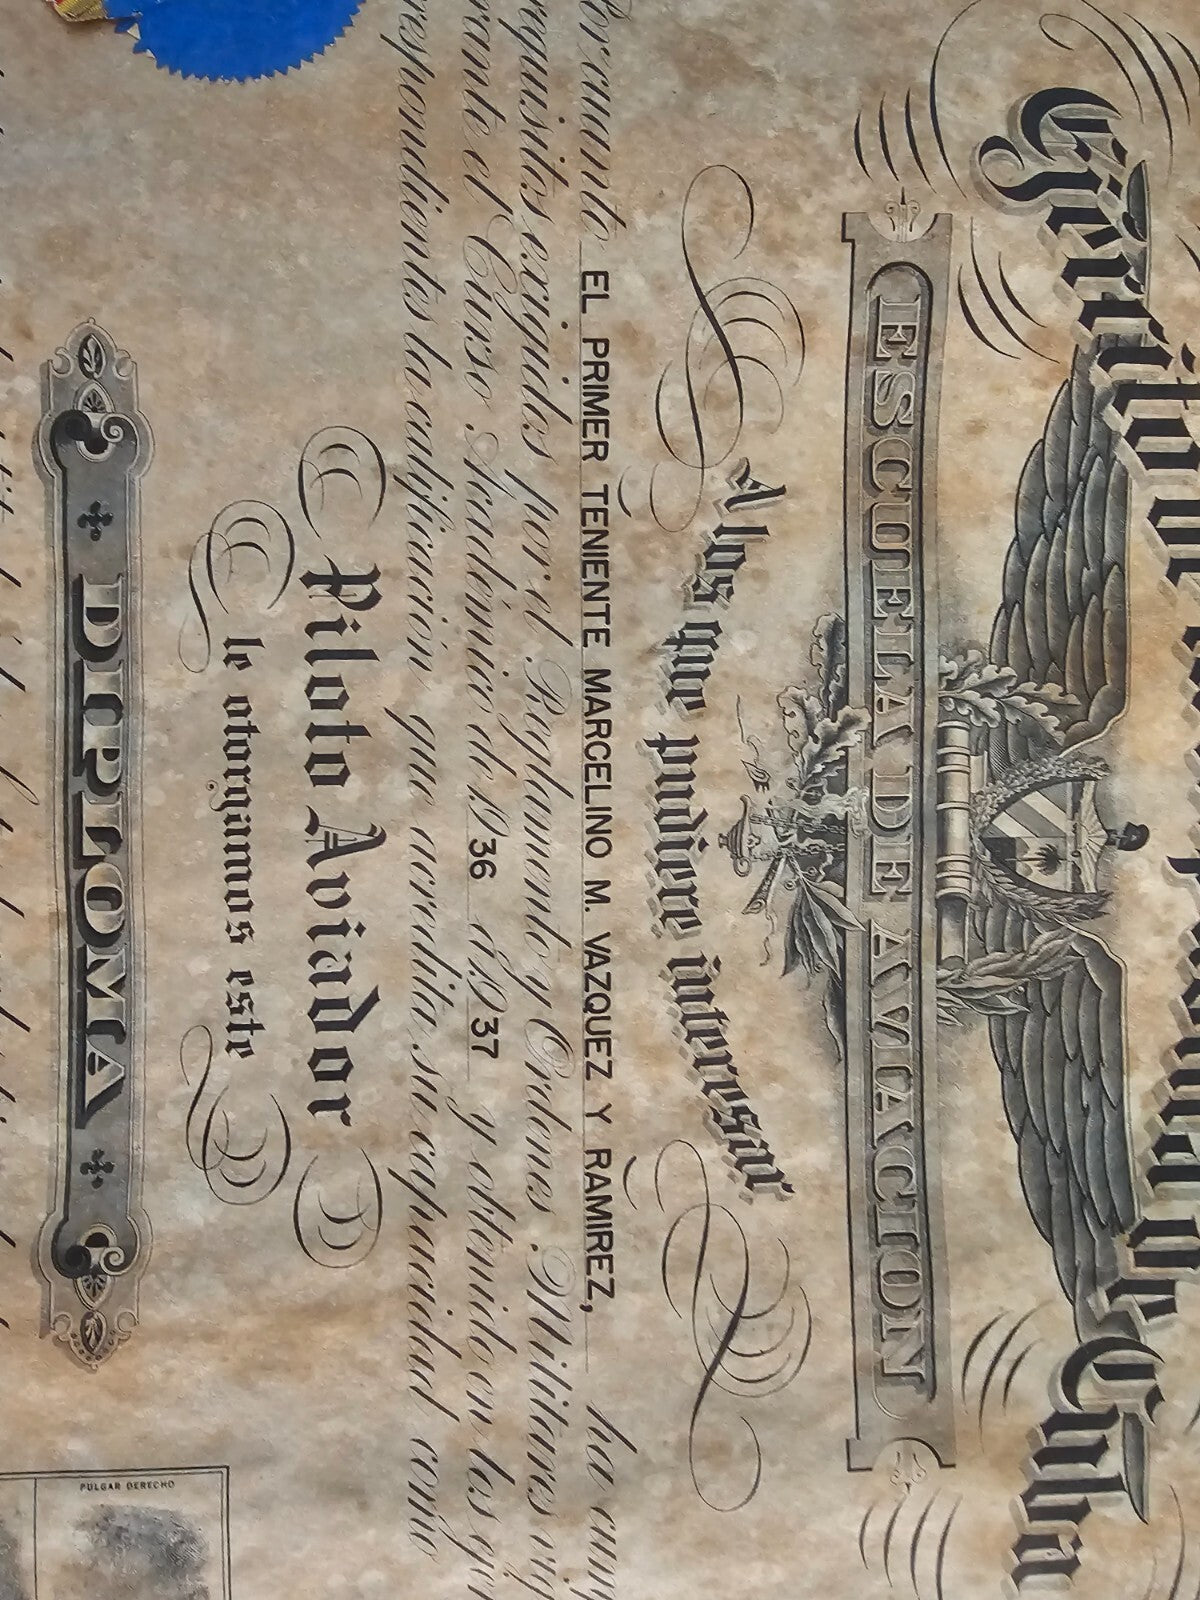 Ejército Constitucional de Cuba
ESCUELA DE AVIACION
A los que pudiere interesar
Por cuanto EL PRIMER TENIENTE MARCELINO M. VAZQUEZ Y RAMIREZ, ha cum
requisitos exigidos por el Reglamento y Ordenes Militares vig
rante el Curso Académico de 1936 a 1937 y obtenido en los ejer
respondientes la calificación que acredita su capacidad como
Piloto Aviador
le otorgamos este
DIPLOMA
PULGAR DERECHO